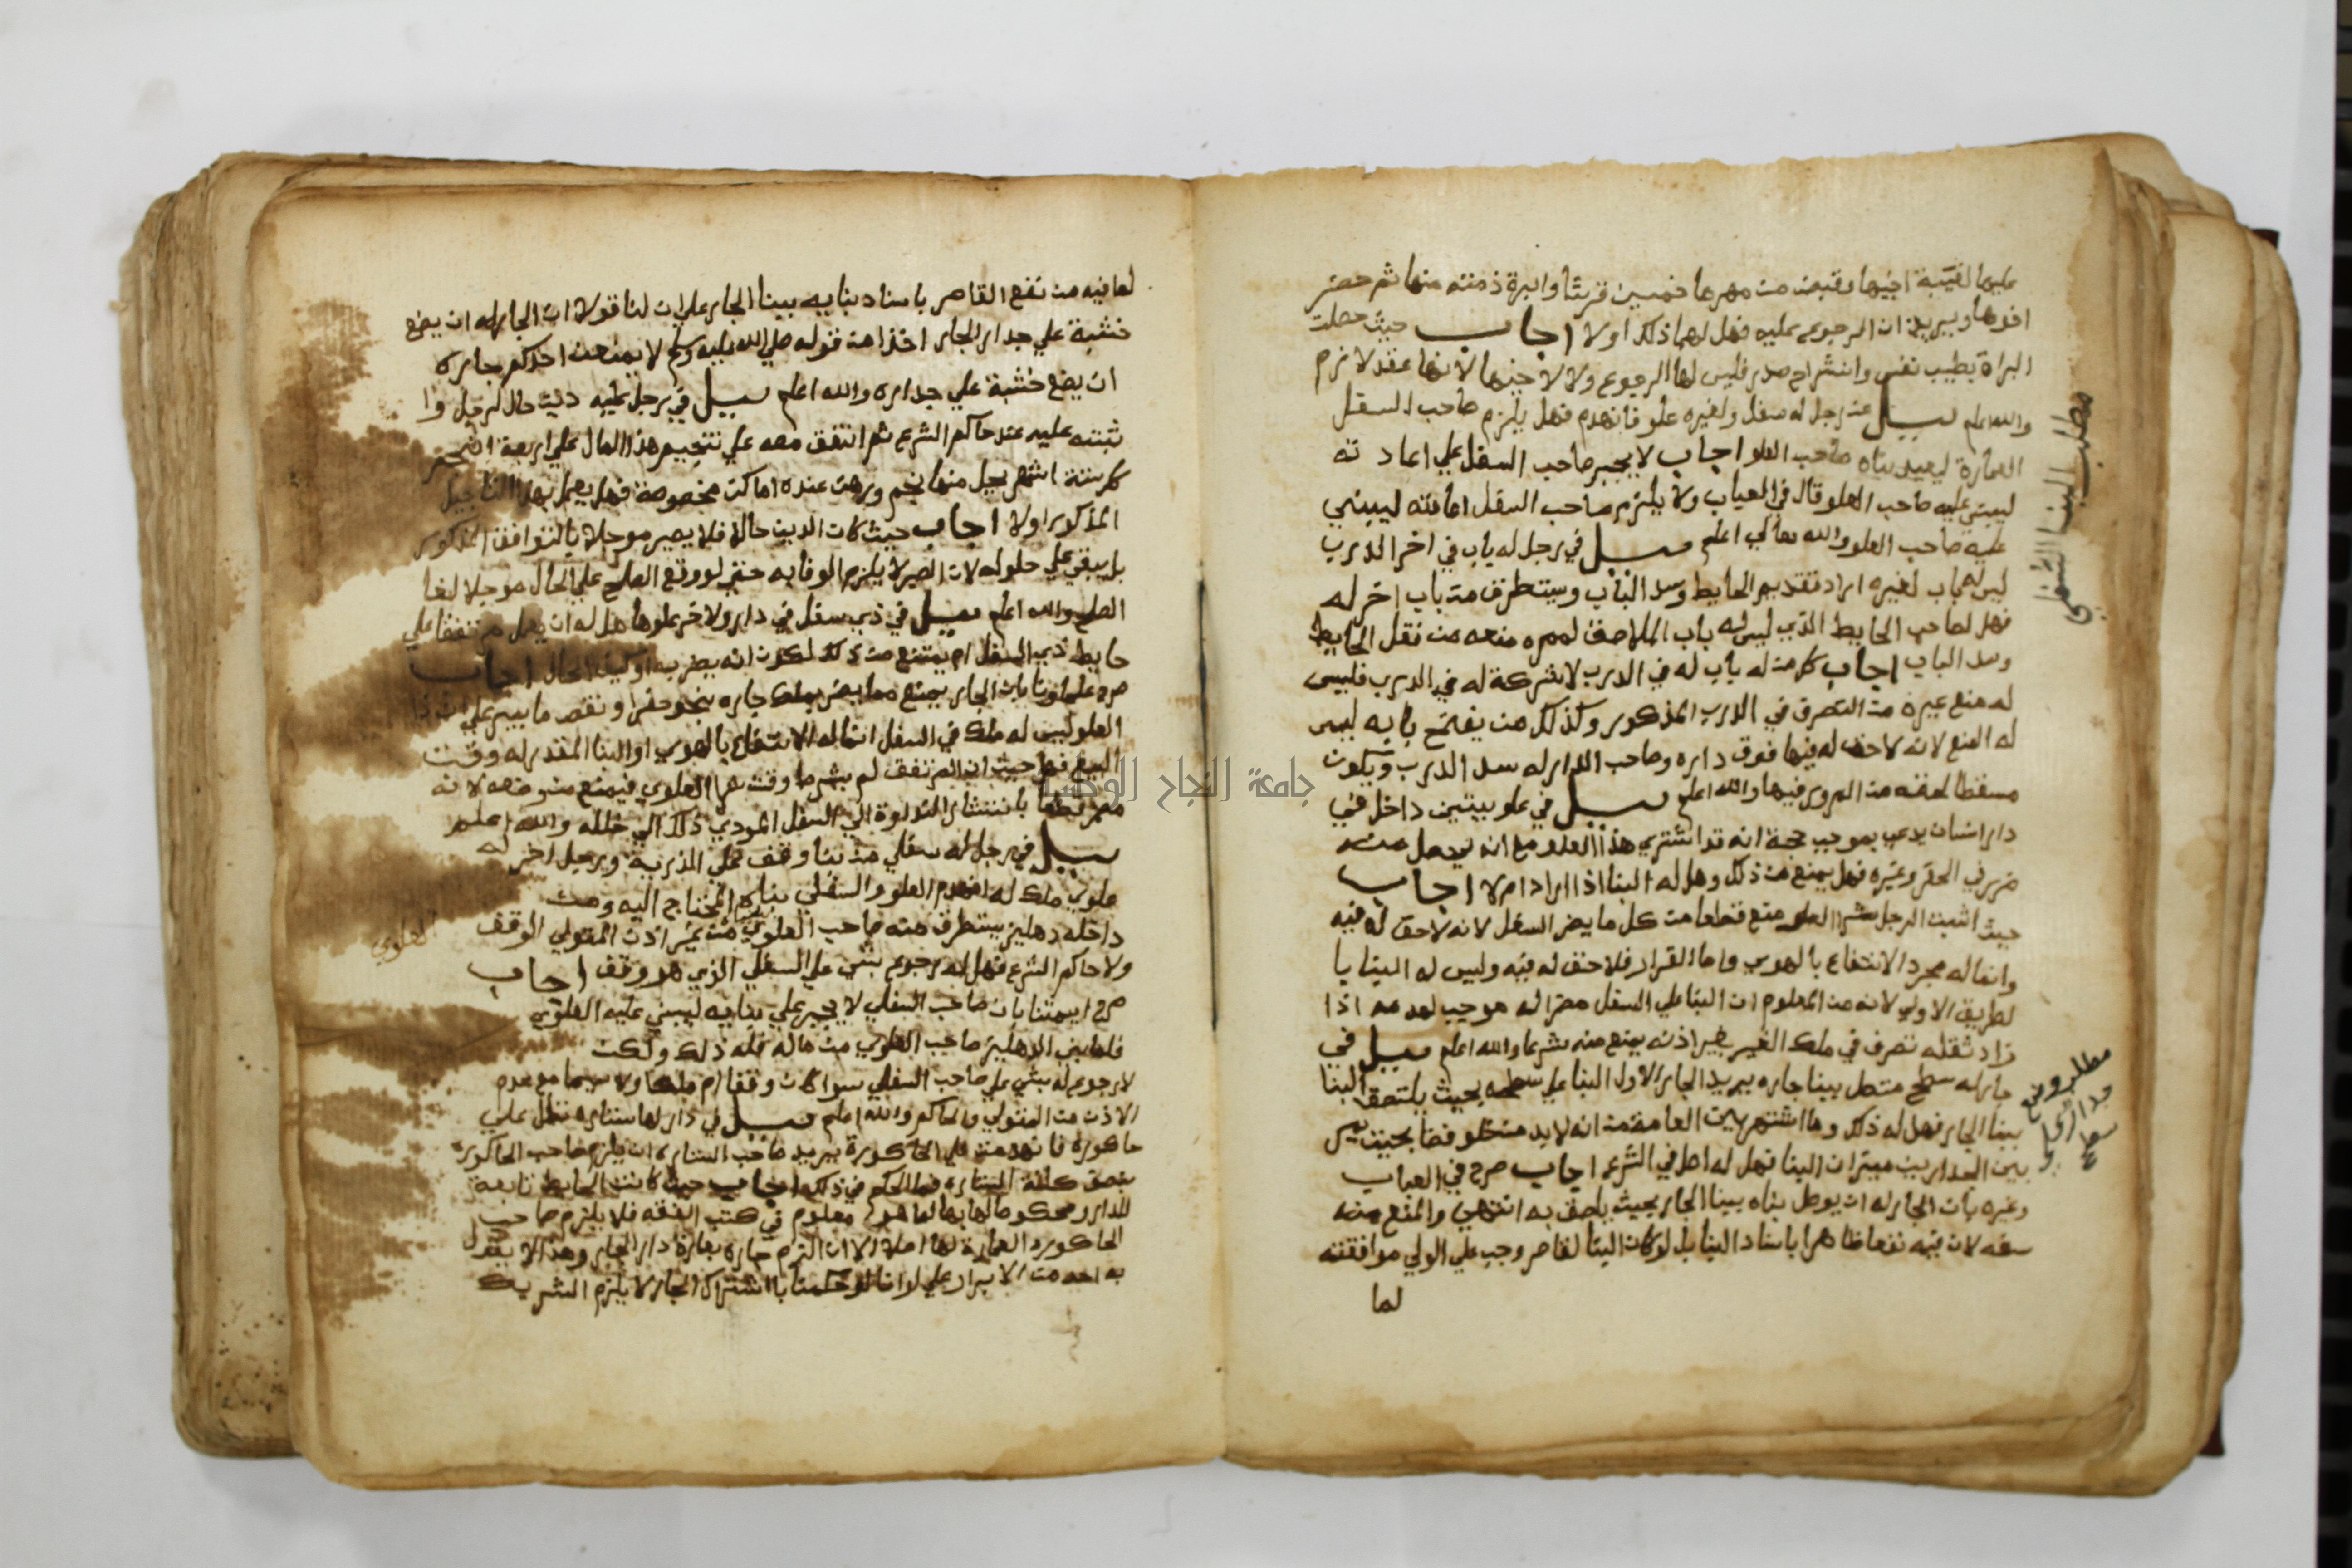 عليها لغيبة اخيها وقبض من مهرها خمسين قرشا وابرة ذمته منها ثم حضر
اخوها ويريد ان الرجوع عليه فهل لهما ذلك اولا اجاب حيث حصلت
البراة بطيب نفس وانشراح صدر فليس لها الرجوع ولا لاخيها لانها عقد لازم
والله اعلم سيل عن رجل له سفل ولغيره علو فانهدم فهل يلزم صاحب السفل
العمارة ليعيد بناه صاحب العلو اجاب لا يجبر صاحب السفل علي اعاد ته
ليبني عليه صاحب العلو قال في العباب ولا يلزم صاحب السفل اعادته ليبني
عليه صاحب العلو والله تعالي اعلم سيل في رجل له باب في اخر الدرب
ليس له باب لغيره اراد تقديم الحايط وسد الباب ويستطرق من باب اخر له
فهل لصاحب الحايط الذي ليس له باب الملاصق لممره منعه من نقل الحايط
وسد الباب اجاب كل من له باب له في الدرب لا شركة له في الدرب فليس
له منع غيره من التصرف في الدرب المذكور وكذلك من يفتح بابه ليس
له المنع لانه لا حق له فيها فوق داره وصاحب الدار له سد الدرب ويكون
مسقطا لحقه من المرور فيها والله اعلم سيل في علو بيتين داخل في
دار انسان يدعي بموجب حجة انه قد اشتري هذا العلو مع انه يحصل منه
ضرر في الحفر وغيره فهل يمنع من ذلك وهل له البنا اذا اراد ام لا اجاب
حيث اثبت الرجل شرا العلو منع قطعا من كل ما يضر السفل لانه لا حق له فيه
وانما له مجرد الانتفاع بالهوي واما القرار فلا حق له فيه وليس له البنا با
لطريق الاولي لانه من المعلوم ان البنا علي السفل مضر له موجب لهدمه اذا
زاد ثقله تصرف في ملك الغير بغير اذنه يمنع منه شرعا والله اعلم سيل في
جار له سطح متصل ببنا جاره يريد الجار الاول البنا علي سطحه بحيث يلتصق البنا
ببنا الجار فهل له ذلك وما اشتهر بين العامة من انه لا بد من خلو فضا بحيث
بين الجدارين ميزان البنا فهل له اصل في الشرع اجاب صرح في العباب
وغيره بان الجار له ان يوصل بناه ببنا الجار بحيث يلصق به انتهي والمنع منه
سفه لان فيه نفعا ظاهرا باسناد البنا بل لو كان البنا لقاصر وجب علي الولي موافقته
لما
مطلب البنا السفلي
مطلب وضع
جدار
لما فيه من نفع القاصر باسناد بنايه ببنا الجار علي ان لنا قولا ان الجار له ان يضع
خشبة علي جدار الجار اخذا من قوله صلي الله عليه وسلم لا يمنعن احدكم جاره
ان يضع خشبة علي جداره والله اعلم سيل في رجل عليه دين حال لرجل وا
ثبته عليه عند حاكم الشرع ثم اتفق معه علي تنجيم هذا المال علي اربعة انجم
كل ستة اشهر يحل منها نجم ورهن عنده اماكن مخصوصة فهل يعمل بهذا التاجيل
المذكور اولا اجاب حيث كان الدين حالا فلا يصير موجلا بالتوافق المذكور
بل يبقي علي حلوله لان الصبر لا يلزم الوفا به حتي لو وقع الصلح علي الحال موجلا لغا
الصلح والله اعلم سيل في ذي سفل في دار ولاخر علوها هل له ان يعمل مرتفقا علي
حايط ذي السفل ام يمتنع من ذلك لكون انه يضر به او كيف الحال اجاب
صرح علماونا بان الجار يمنع مما يضر بملك جاره بنحو حفر او نقص ما بير علي ان ذا
العلو ليس له ملك في السفل انما له الانتفاع بالهوي او البنا المقدر له وقت
البيع فهل حيث ان المرتفق لم يشرط وقت شرا العلوي فيمنع من وضعه لانه
مضر قطعا بانتشار النداوة الي السفل المودي ذلك الي خلله والله اعلم
سيل في رجل له سفلي من بنا وقف علي الذرية ورجل اخر له
علوي ملك له انهدم العلو والسفلي بناه المحتاج اليه ومن
داخله دهليز يستطرق منه صاحب العلوي من غير اذن المتولي الوقف
العلوي
ولا حاكم الشرع فهل له رجوع بشي علي السفلي الذي هو وقف اجاب
صرح ايمتنا بان صاحب السفلي لا يجبر علي بنايه ليبني عليه العلوي
فلما بني الدهليز صاحب العلوي من ماله فله ذلك ولكن
لا رجوع له بشي علي صاحب السفلي سوا كان وقفا ام ملكا ولا سيما مع عدم
الاذن من المتولي والحاكم والله اعلم سيل في دار لها ستاره تطل علي
حاكورة فانهدمت علي الحاكورة يريد صاحب الستاره ان يلزم صاحب الحاكوره
بنصف كلفة الستاره فما الحكم في ذلك اجاب حيث كانت الحايط تابعة
للدار ومحكوما لها بها لما هو معلوم في كتب الفقه فلا يلزم صاحب
الحاكوره العمارة لها اصلا الا ان التزم جاره بعمارة دار الجار وهذا لا يقول
به احد من الابرار علي اننا لو حكمنا باشتراك الجار لا يلزم الشريك
جامعة النجاح الوطنية